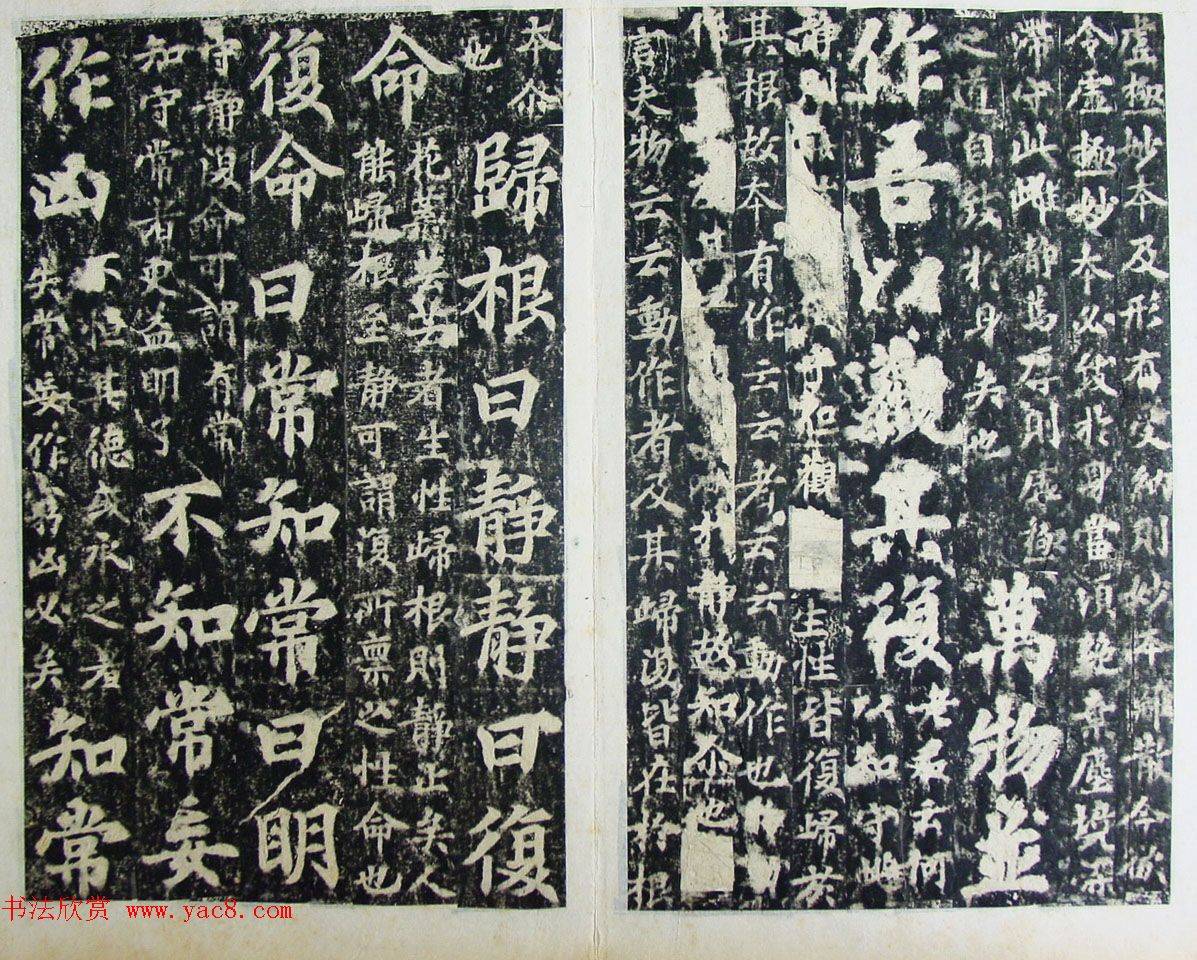 虛極妙本及形有受納則妙本離散今欲
令虛極妙本必致於身當須絕棄塵境染
滯守此雌静篤厚則虛極
之道自致於身矣也
萬物並
作吾以觀其復
老君云何
以知守雌
静則
守此觀
生性皆復歸於
其根故本有作云云者云云動作也
作
其
於静故知
也
言夫物云云動作者及其歸復皆在於根
本
也
歸根曰静静曰復
命
花葉芸芸者生性歸根則静止矣人
能歸根至静可謂復所禀之性命也
復命曰常知常曰明
守静復命可謂有常
知守常者更益明了
不知常妄
作凶
不恒其德或承之羞
失常妄作窮凶必矣
知常
书法欣赏 www.yac8.com